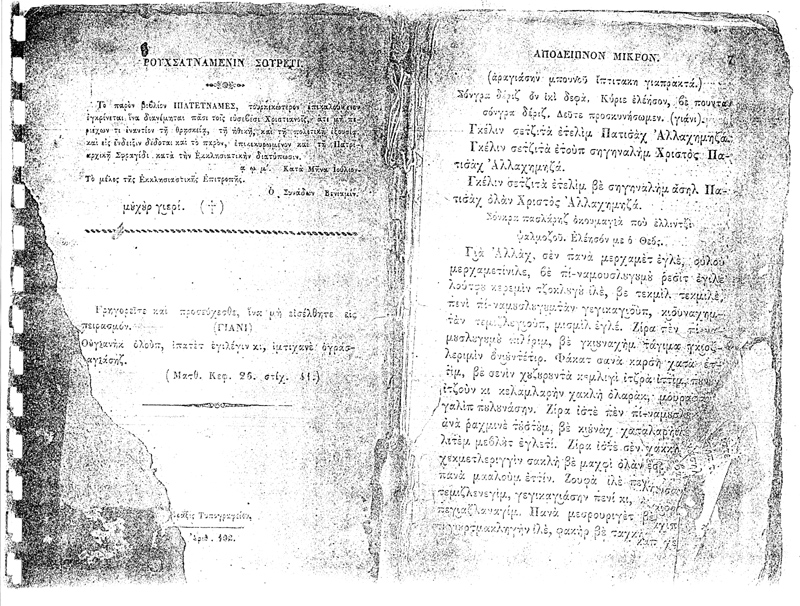 ΡΟΥΧΣΑΤΝΑΜΕΝΙΝ ΣΟΥΡΕΤΙ.
Τὸ παρὸν βιβλίον ΙΠΑΤΕΤΝΑΜΕΣ, τουρκικώτερον ἐπικαλούμενον
ἐγκρίνεται ἵνα διανέμηται πᾶσι τοῖς εὐσεβέσι Χριστιανοῖς, ἅτε μὴ πε-
ριέχων τι ἐναντίον τῇ θρησκείᾳ, τῇ ἠθικῇ, καὶ τῇ πολιτικῇ ἐξουσίᾳ
καὶ εἰς ἔνδειξιν δίδοται καὶ τὸ παρὸν, ἐπικεκυρωμένον καὶ τῇ Πατρι-
αρχικῇ Σφραγῖδι κατὰ τὴν Ἐκκλησιαστικὴν διατύπωσιν.
Κατὰ Μῆνα Ἰούλιον
Τὸ μέλος τῆς Ἐκκλησιαστικῆς Ἐπιτροπῆς.
Ὁ Συνάδων Βενιαμίν.
μὐχὐρ γιερί. (☩)
Γρηγορεῖτε καὶ προσεύχεσθε, ἵνα μὴ εἰσέλθητε εἰς
πειρασμόν. (ΓΙΑΝΙ)
Οὐγιανὴκ ὀλοὺπ, ἱπατὲτ ἐγιλέγιν κι, ἰμτιχανὲ ὀγρὰσ-
αγιάσηζ.
(Ματθ. Κεφ. 26. στίχ. 41.)
Τυπογραφεῖον,
Ἀριθ. 102.
ΑΠΟΔΕΙΠΝΟΝ ΜΙΚΡΟΝ. 7
(ἀραγιάσην μπουνοῦ ἵπτιτακη γιαπρακτά.)
Σόνγρα δέριζ ὂν ἰκὶ δεφά. Κύριε ἐλέησον, βὲ πουντὰν
σόνγρα δέριζ. Δεῦτε προσκυνήσωμεν. (γιάνι).
Γκέλιν σετζιτὰ ἐτελὶμ Πατισὰχ Ἀλλαχημηζά.
Γκέλιν σετζιτὰ ἐτοὺπ σηγηναλὴμ Χριστὸς Πα-
τισὰχ Ἀλλαχημηζά.
Γκέλιν σετζιτὰ ἐτελὶμ βὲ σηγηναλὴμ ἀσηλ Πα-
τισὰχ ὀλὰν Χριστὸς Ἀλλαχημηζά.
Σόνκρα πασλάρηζ ὀκουμαγιὰ ποὺ ἐλλιντζὶ
ψαλμοζού. Ἐλέησόν με ὁ Θεός.
Γιὰ Ἀλλὰχ, σὲν πανὰ μερχαμὲτ ἐγλὲ, οὐλοὺ
μερχαμετίνιλε, βὲ πι-ναμουσλυγουμυ ρεδὶτ ἐγιλὲ
λούτφυ κερεμὶν τζοκλυγὺ ἰλὲ, βὲ τεκμὶλ τεκμιλὲ,
πενὶ πι-ναμυσλυγυμτὰν γεγικαγιοὺπ, κιουναχημ-
τὰν τεμιζλεγιοὺπ, μισμὶλ ἐγλέ. Ζίρα τὲν πι-να-
μυσλυγυμὺ πιλίριμ, βὲ γκιουναχὴμ τάγιμα γκιοζ-
λεριμὶν ὀνιουντέτιρ. Φάκατ σανὰ καρσὴ χατὰ ἐτ-
τὶμ, βὲ σενὶν χυζυρυντὰ κεμλιγὶ ἰτζρὰ ἐττὶμ,
ἰτζοῦν κι κελαμλαρὴν χακλὴ ὀλαρὰκ,
γαλὶπ πυλυνάσην. Ζίρα ἰστὲ πὲν πι-ναμυσλυγ
ἀνὰ ραχμινὲ τυστυμ, βὲ κιυνὰχ χαταλαρὴν
λιτὲμ μεβλὰτ ἐγλετί. Ζίρα ἰστὲ σὲν χακκὴ
χεκμετλεριγγὶν σακλὴ βὲ μαχφὶ ὀλὰν
πανὰ μααλοὺμ ἐττίν. Ζουφὰ ἰλὲ
τεμιζλενεγὶμ, γεγικαγιάσην πενὶ κι,
πεγιαζλαναγίμ. Πανὰ μεσρουριγὲτ βὲ
ἰλὲ, φακὴρ βὲ